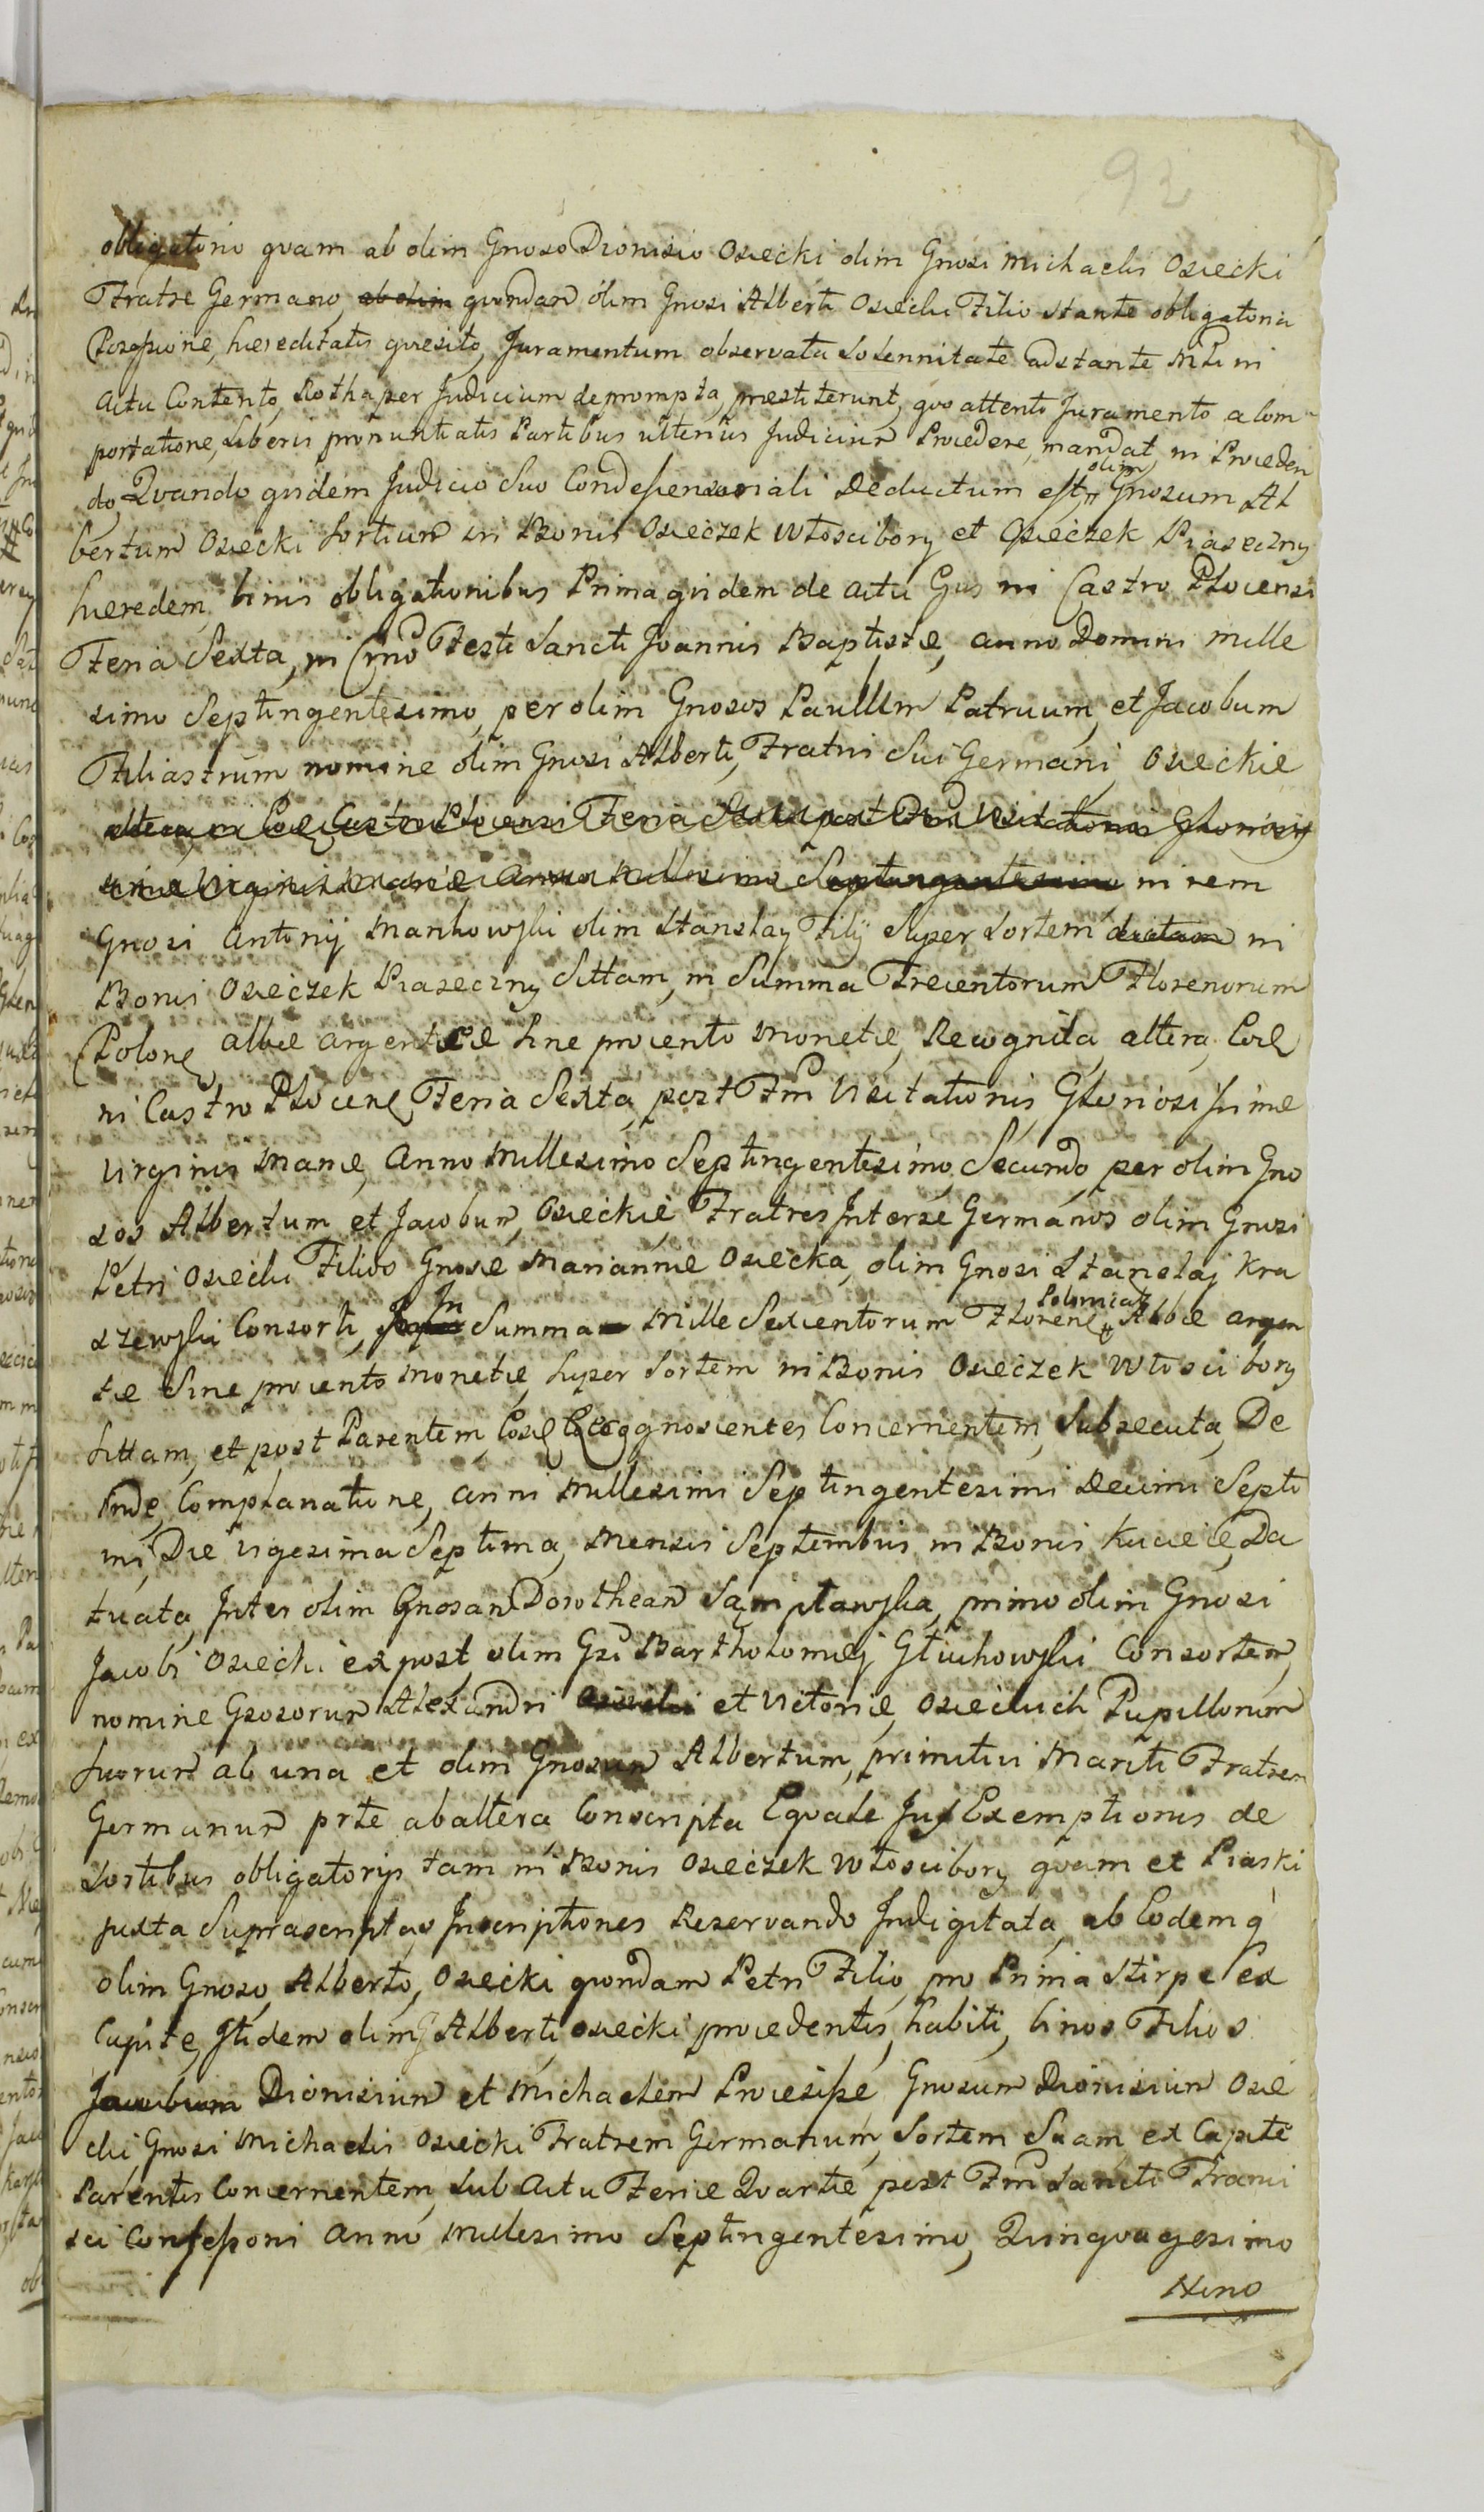 92
obligatorio qvam ab olim Gnoso Dionisio Osiecki olim Gnosi Michaelis Osiecki
Fratre Germano, ab olim qvondam olim Gnosi Alberti Osiecki Filio stante obligatoria
Possessione, haereditatis qvaesito, Juramentum observata Solennitate adstante Mtri in
Actu Contento, Rotha per Judicium deprompta, praestiterunt, qvo attento Juramento a Com
portatione, Liberis pronuntiatis Partibus ulterius Judicium Procedere, mandat, in Proceden
do, Qvando qvidem Judicio Suo Condescensoriali Deductum est, olim Gnosum Al
bertum Osiecki Sortium in Bonis Osieczek Włoscibory et Osieczek Piaseczny
haeredem, binis obligationibus Prima qvidem de actu Gus in Castro Plocensi
Feria Sexta, in Cmo Festi Sancti Joannis Baptistae, anno Domini Mille
simo Septingentesimo, per olim Gnosos Paullum Patruum, et Jacobum
Filiastrum, nomine olim Gnosi Alberti, Fratris Sui Germani, Osieckie
altera, in Castro Plocensi Feria Sexta post Visitationis Gloriosis
simae Virginis Mariae Anno Millesimo Septingentesimo in rem
Gnosi Antonij Mankowski olim Stanslay Filij Super Sortem dictam in
Bonis Osieczek Piaseczny Sittam, in Summa Trecentorum Florenorum
Polonl albae argenteae Sine procento Monetae, Recognita, altera, Corl
in Castro Plocenl Feria Sexta, post Fm Visitationis Gloriosissimae
Virginis Mariae, Anno Millesimo Septingentesimo Secundo, per olim Gno
sos Albertum et Jacobum, Osieckie Fratres Inter se Germanos olim Gnosi
Petri Osiecki Filios Gnosae Mariannae Osiecka, olim Gnosi Stanslaj Kra
szewski Consorti, In Summa Mille Sexcentorum Florenl Polonical Albae argen
tae Sine procento Monetae, Super Sortem in Bonis Osieczek Włoscibory
Sittam, et post Parentem, Recognoscentes Concernentem, Subsecuta, De
inde, Complanatione, anni Millesimi Septingentesimi Decimi Septi
mi, Die vigesima Septima, Mensis Septembris in Bonis Kuciele, Da
tuata, Inter olim Gnosam Dorotheam Sąmpławska, primo olim Gnosi
Jacobi Osiecki ex post, olim Gsi Bartholomej Głuchowski Consortem,
nomine Gsosorum Alexandri Osiecki et Victoriae, Osieckich Pupillorum
Suorum ab una et olim Gnosum Albertum, primitivi Mariti Fratrem
Germanum prte ab altera Conscripta Eqvale Jus Exemptionis de
Sortibus obligatorijs tam in Bonis Osieczek Włoscibory qvam et Piaski
juxta Suprascriptas Inscriptiones Reservando Indigitata, ab Eodem q
olim Gnoso, Alberto, Osiecki qvondam Petri Filio, pro Prima Stirpe ex
Capite, Itidem olim Alberti, Osiecki procedentis, habiti, binos Filios
Jacobum Dionisium et Michaelem Processisse Gnosum Dionisium Osie
cki Gnosi Michaelis Osiecki Fratrem Germanum, Sortem Suam, ex Capite
Parentis Concernentem, Sub Actu Feriae Qvartae post Fm Sancti Franci
sci Confessoni Anno Millesimo Septingentesimo, Qvinqvagesimo
Nino